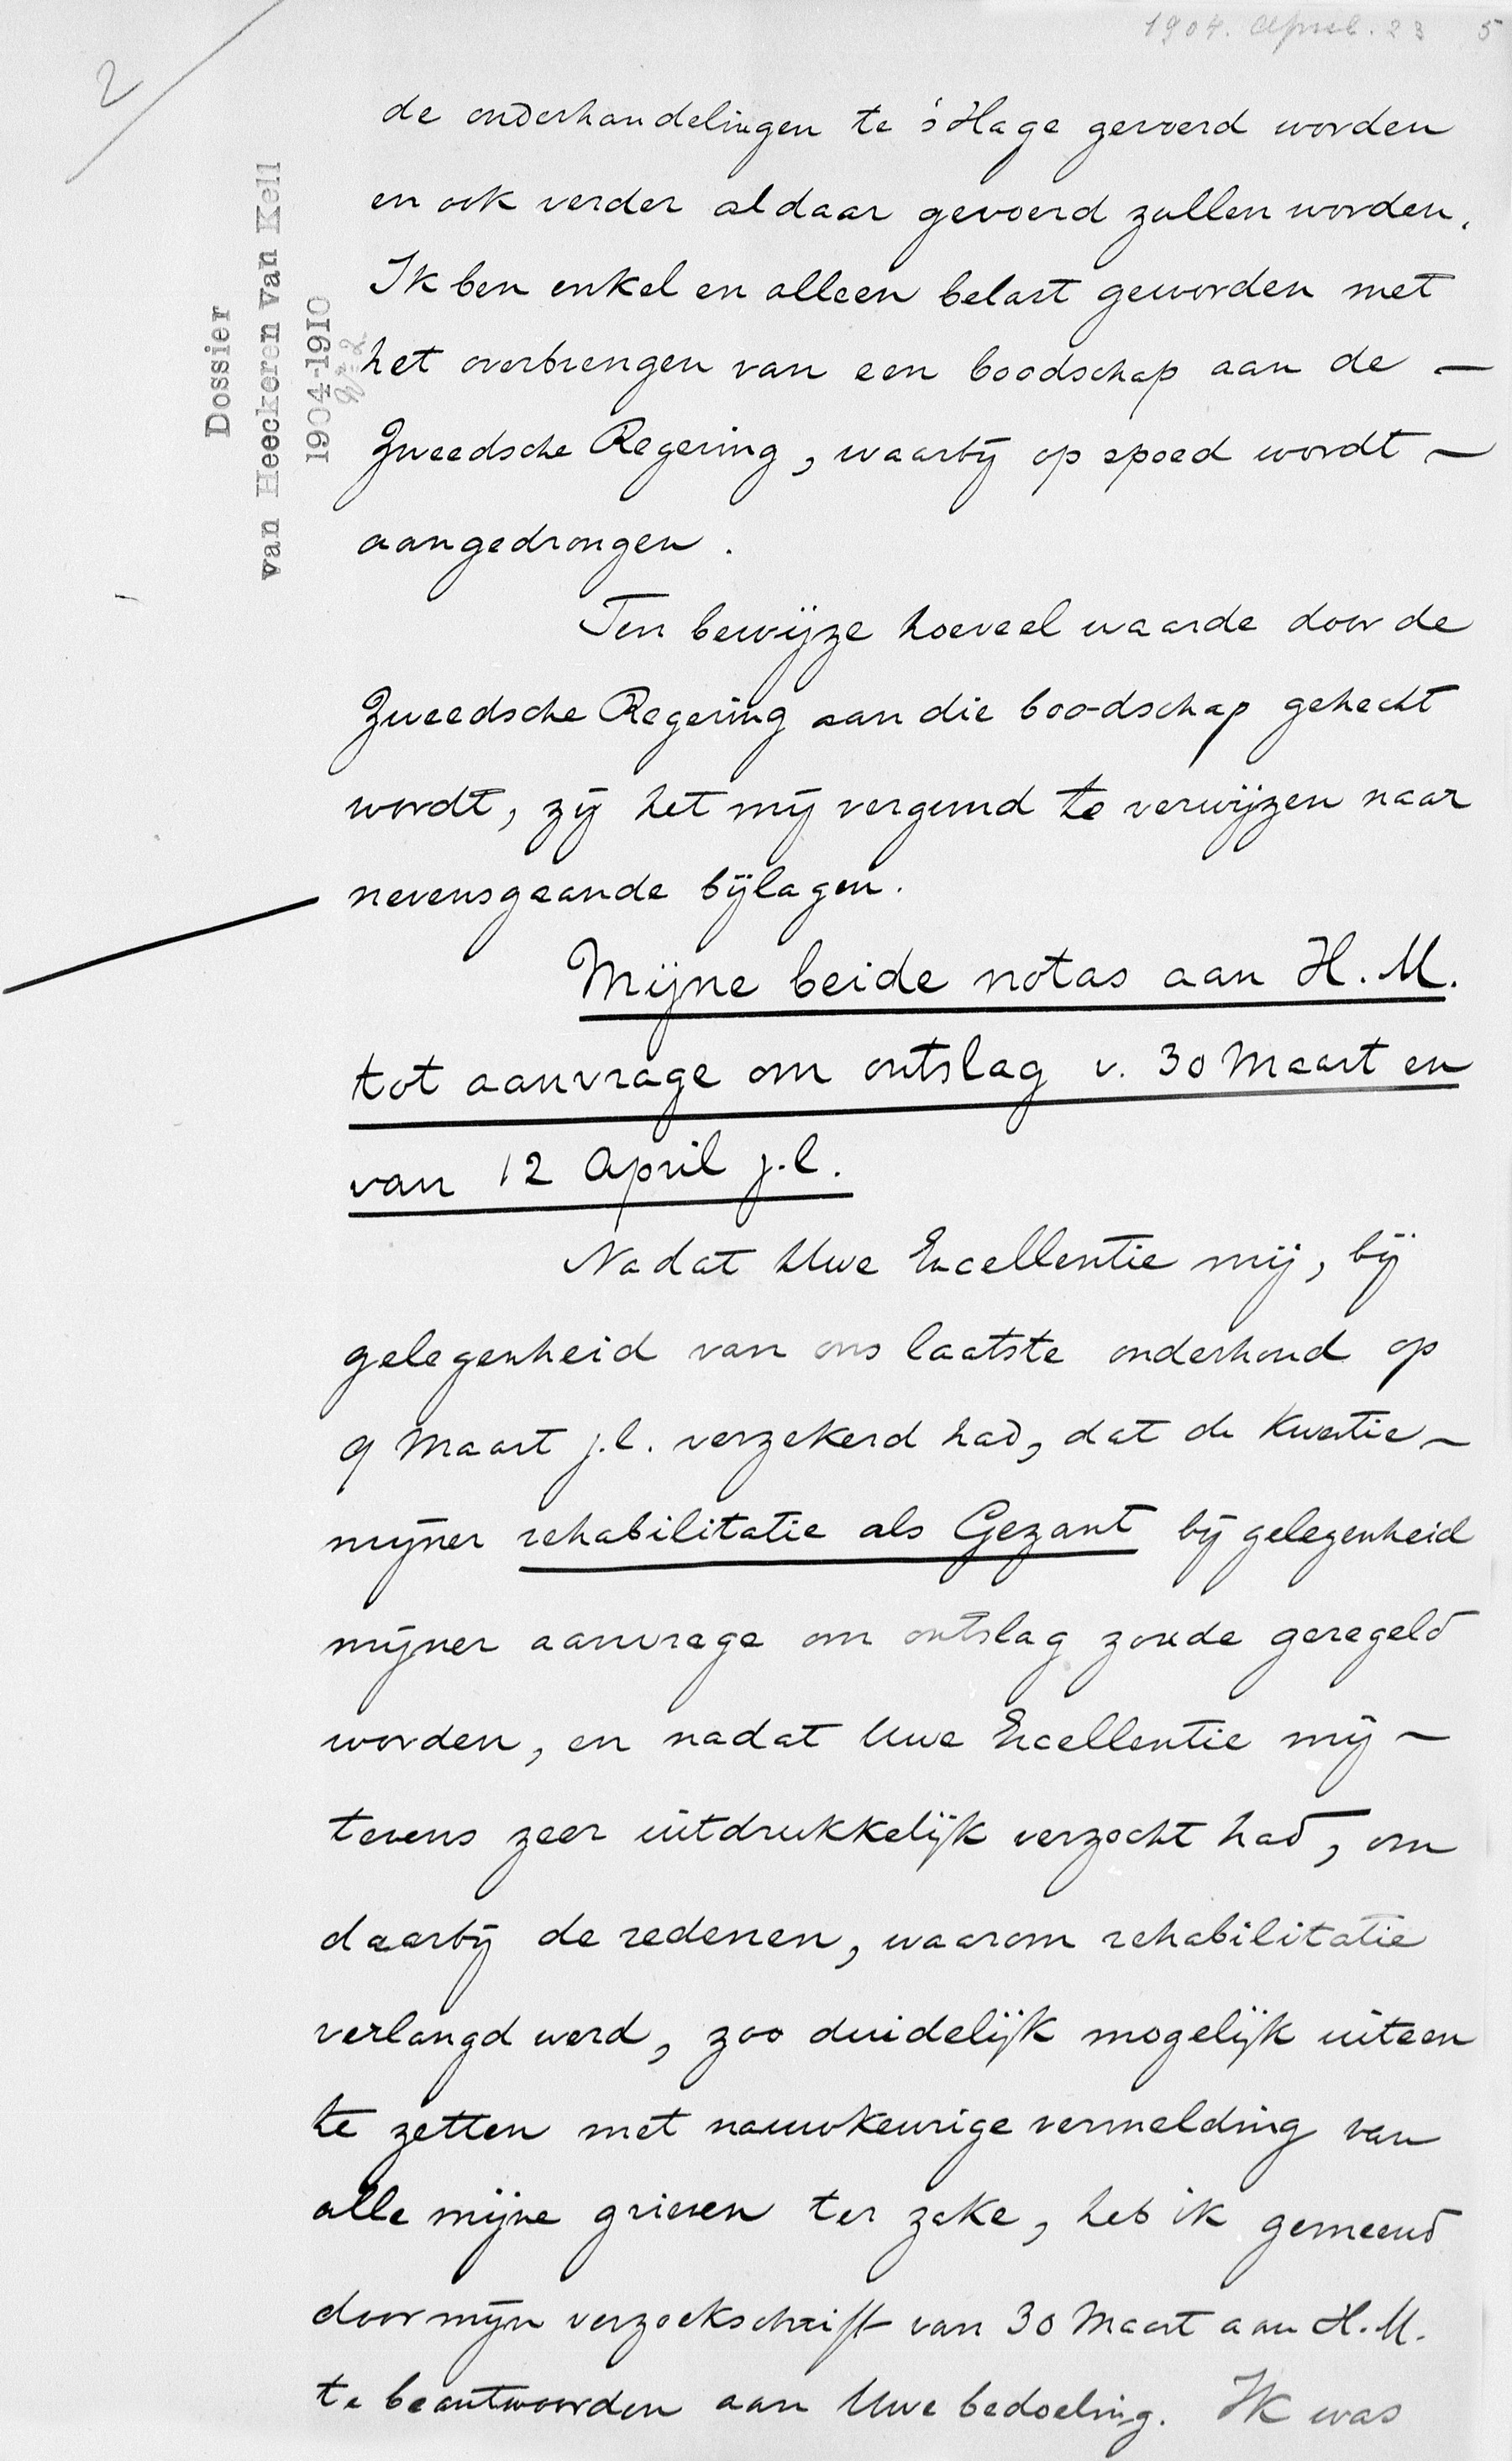 1904. April. 23 5
2
Dossier
van Heeckeren van Kell
1904-1910
de onderhandelingen te 's Hage gevoerd worden
en ook verder aldaar gevoerd zullen worden.
Ik ben enkel en alleen belast geworden met
het overbrengen van een boodschap aan de —
Zweedsche Regering, waarbij op spoed wordt —
aangedrongen.
Ten bewijze hoeveel waarde door de
Zweedsche Regering aan die boodschap gehecht
wordt, zij het mij vergund te verwijzen naar
nevensgaande bijlagen.
Mijne beide notas aan H.M.
tot aanvrage om ontslag v. 30 Maart en
van 12 April j.l.
Nadat Uwe Excellentie mij, bij
gelegenheid van ons laatste onderhoud op
9 Maart j.l. verzekerd had, dat de kwestie —
mijner rehabilitatie als Gezant bij gelegenheid
mijner aanvrage om ontslag zoude geregeld
worden, en nadat Uwe Excellentie mij —
tevens zeer uitdrukkelijk verzocht had, om
daarbij de redenen, waarom rehabilitatie
verlangd werd, zoo duidelijk mogelijk uiteen
te zetten met nauwkeurige vermelding van
alle mijne grieven ter zake, heb ik gemeend
door mijn verzoekschrift van 30 Maart aan H.M.
te beantwoorden aan Uwe bedoeling. Ik was